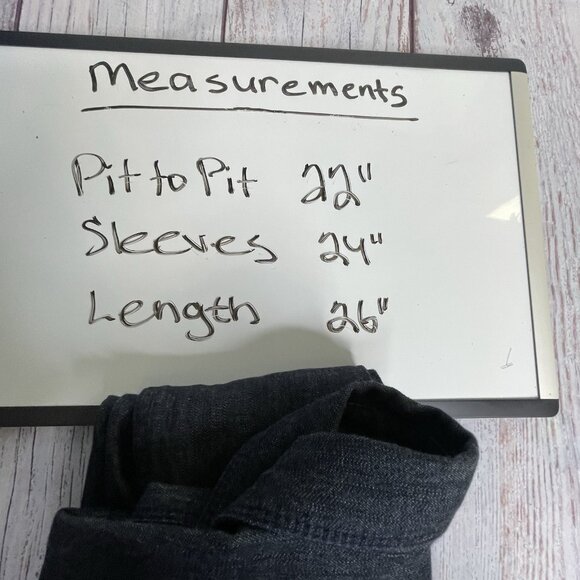 Measurements
Pit to Pit 22"
Sleeves 24"
Length 26"